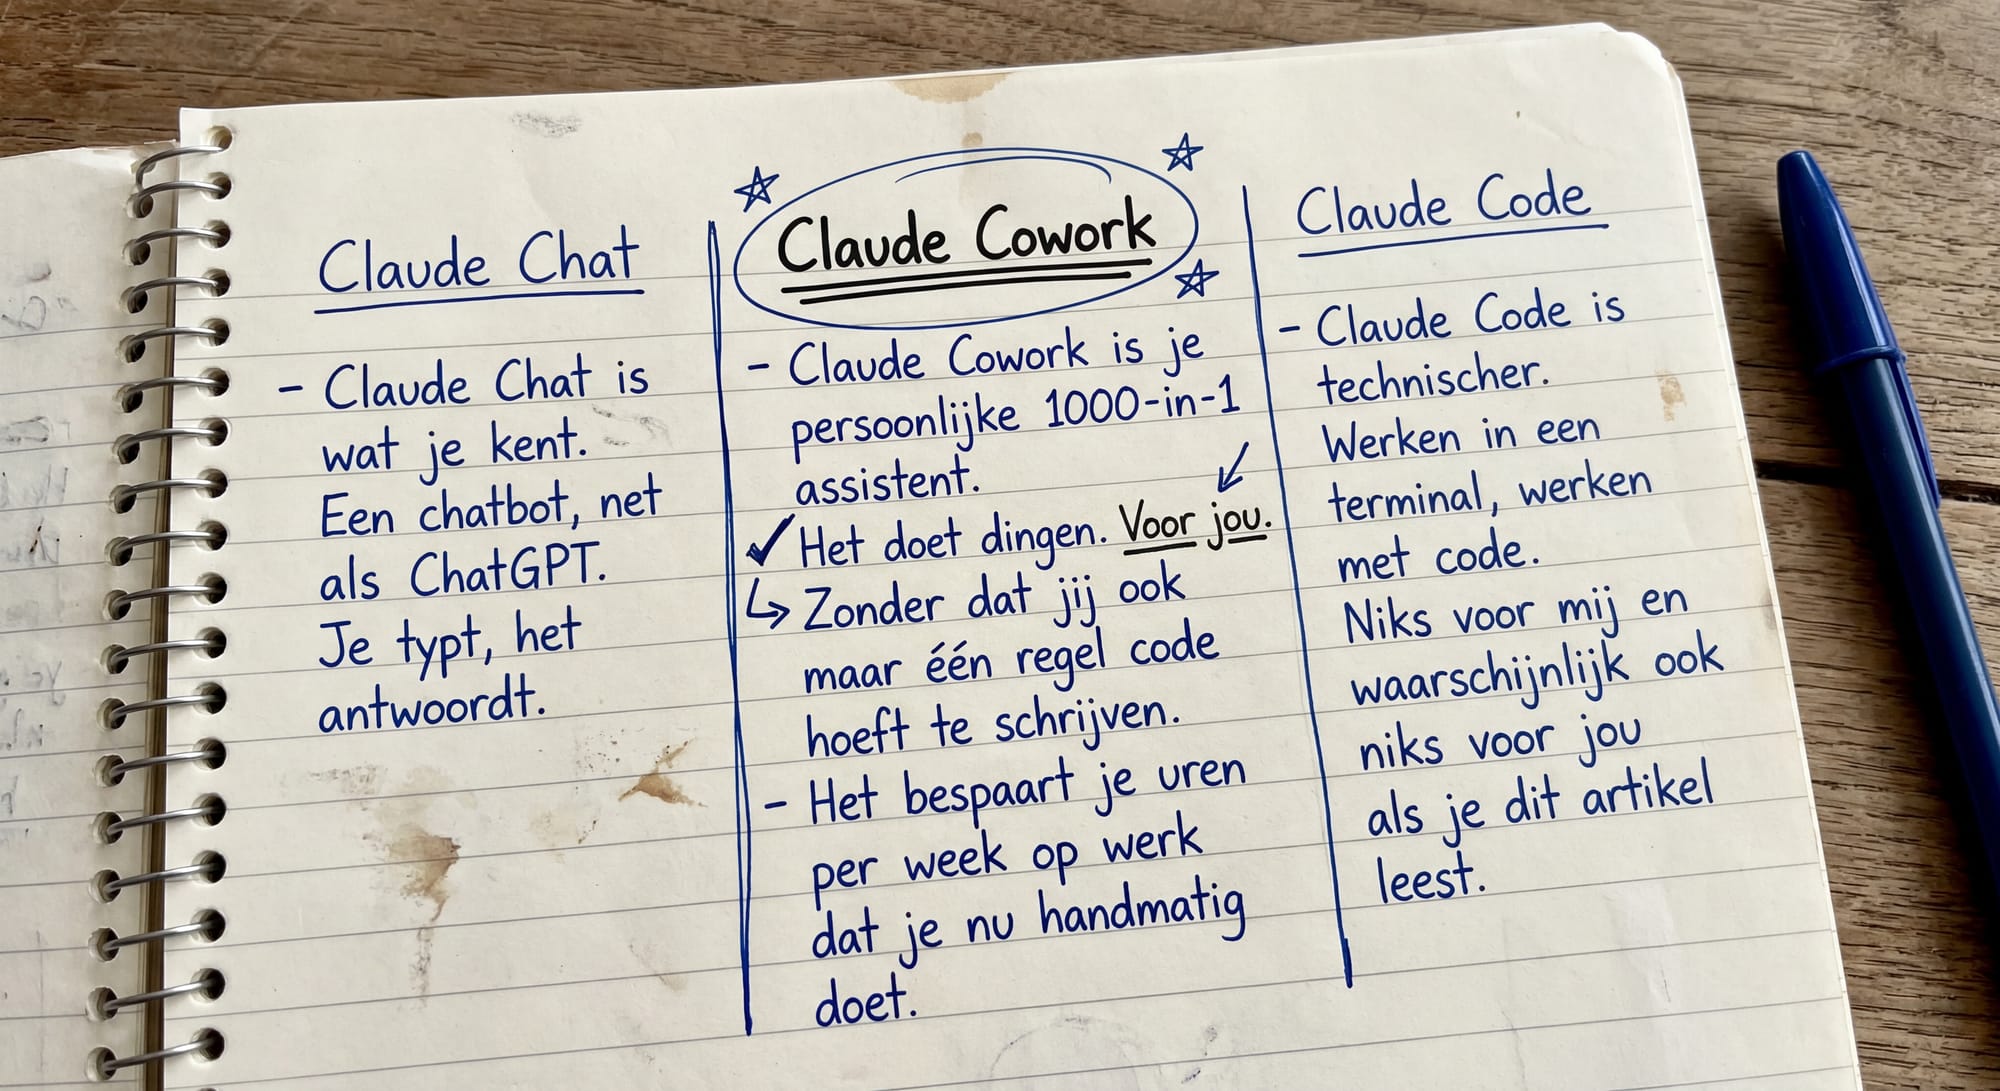 Claude Chat
- Claude Chat is
wat je kent.
Een chatbot, net
als ChatGPT.
Je typt, het
antwoordt.
Claude Cowork
- Claude Cowork is je
persoonlijke 1000-in-1
assistent.
✓ Het doet dingen. Voor jou.
↳ Zonder dat jij ook
maar één regel code
hoeft te schrijven.
- Het bespaart je uren
per week op werk
dat je nu handmatig
doet.
Claude Code
- Claude Code is
technischer.
Werken in een
terminal, werken
met code.
Niks voor mij en
waarschijnlijk ook
niks voor jou
als je dit artikel
leest.